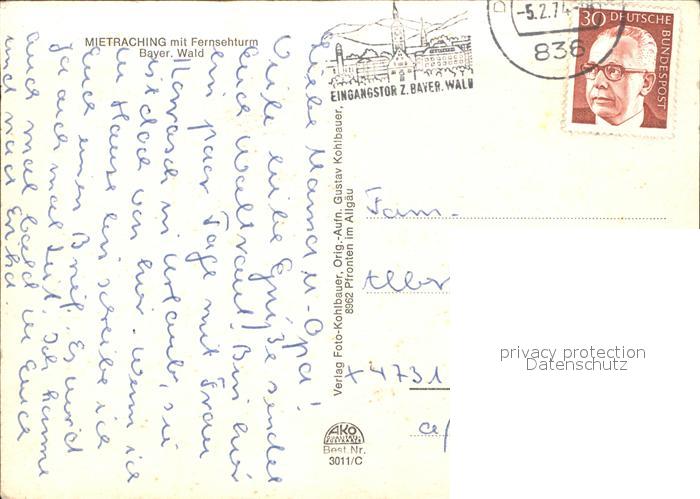 MIETRACHING mit Fernsehturm
Bayer. Wald
Liebe Mama u. Opa!
Viele liebe Grüße sendet
Euch Waltraud. Bin hier
ein paar Tage mit Frau
in Urlaub, sie
ist doch von hier. Wenn ich
zu Hause bin schreibe ich
Euch einen Brief. Es wird
ja auch mal Zeit. Ich komme
auch mal bald zu Euch
und nach
Verlag Foto-Kohlbauer, Orig.-Aufn. Gustav Kohlbauer,
8962 Pfronten im Allgäu
EINGANGSTOR Z. BAYER. WALD
-5.2.74-
836
30 DEUTSCHE
BUNDESPOST
Fam.
X 4731
AKO
QUALITÄTS-
POSTKARTE
Best.Nr.
3011/C
privacy protection
Datenschutz